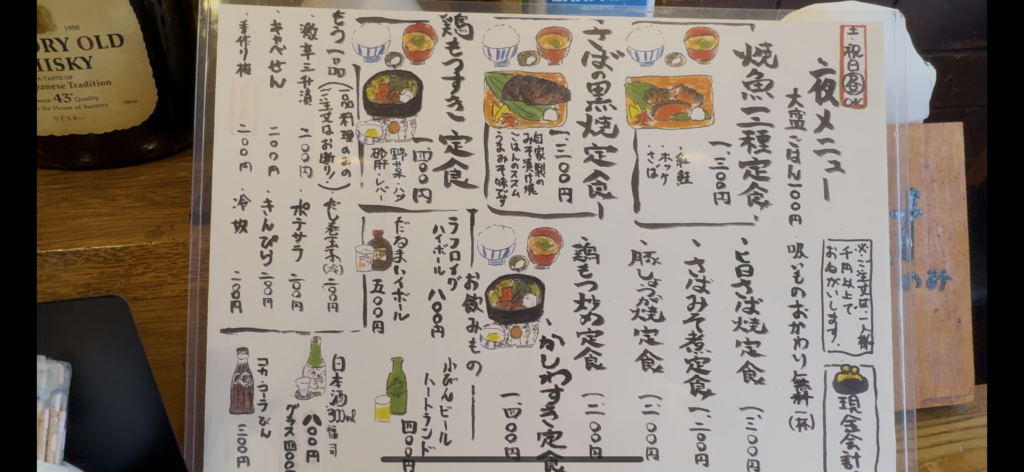 土・祝日昼OK
夜メニュー
大盛ごはん一〇〇円
吸いものおかわり無料(一杯)
※ご注文は一人様
千円以上で
おねがいします。
現金会計
焼魚二種定食
一、三〇〇円
・紅鮭
・ホッケ
・さば
さばの黒焼定食
一、三〇〇円
自家製の
みそ漬け焼
ごはんのススム
うまみそ味です
鶏もつすき定食
一、四〇〇円
野菜・ハツ
砂肝・レバー
・旨さば焼定食 一、三〇〇円
・さばみそ煮定食 一、二〇〇円
・豚しょうが焼定食 一、二〇〇円
・鶏もつ炒め定食 一、二〇〇円
・かしわすき定食
一、四〇〇円
もう一品(一品料理のみの
ご注文はお断り)
・激辛三升漬 二〇〇円
・キャベせん 二〇〇円
・手作り梅 二〇〇円
・ポテサラ 二〇〇円
・きんぴら 二〇〇円
・冷奴 二〇〇円
お飲みもの
ラフロイグ
ハイボール 八〇〇円
だるまハイボール 五〇〇円
小びんビール
ハートランド
日本酒300ml
八〇〇円
コカ・コーラびん 三〇〇円
ORY OLD
HISKY
A TASTE OF
panese Tradition
43° Quality
ウイスキー